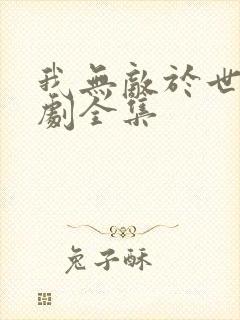 我無敵於世
劇全集
兔子酥